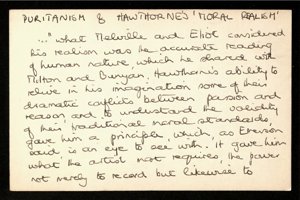 PURITANISM & HAWTHORNE'S 'MORAL REALISM'
"..." what Melville and Eliot considered
his realism was the accurate reading
of human nature, which he shared with
Milton and Bunyan. Hawthorne's ability to
relive in his imagination some of their
dramatic conflicts between passion and
reason, and to understand the validity
of their traditional moral standards,
gave him a principle which, as Emerson
said is an eye to see with. It gave him
what the artist most requires, the power
not merely to record but likewise to